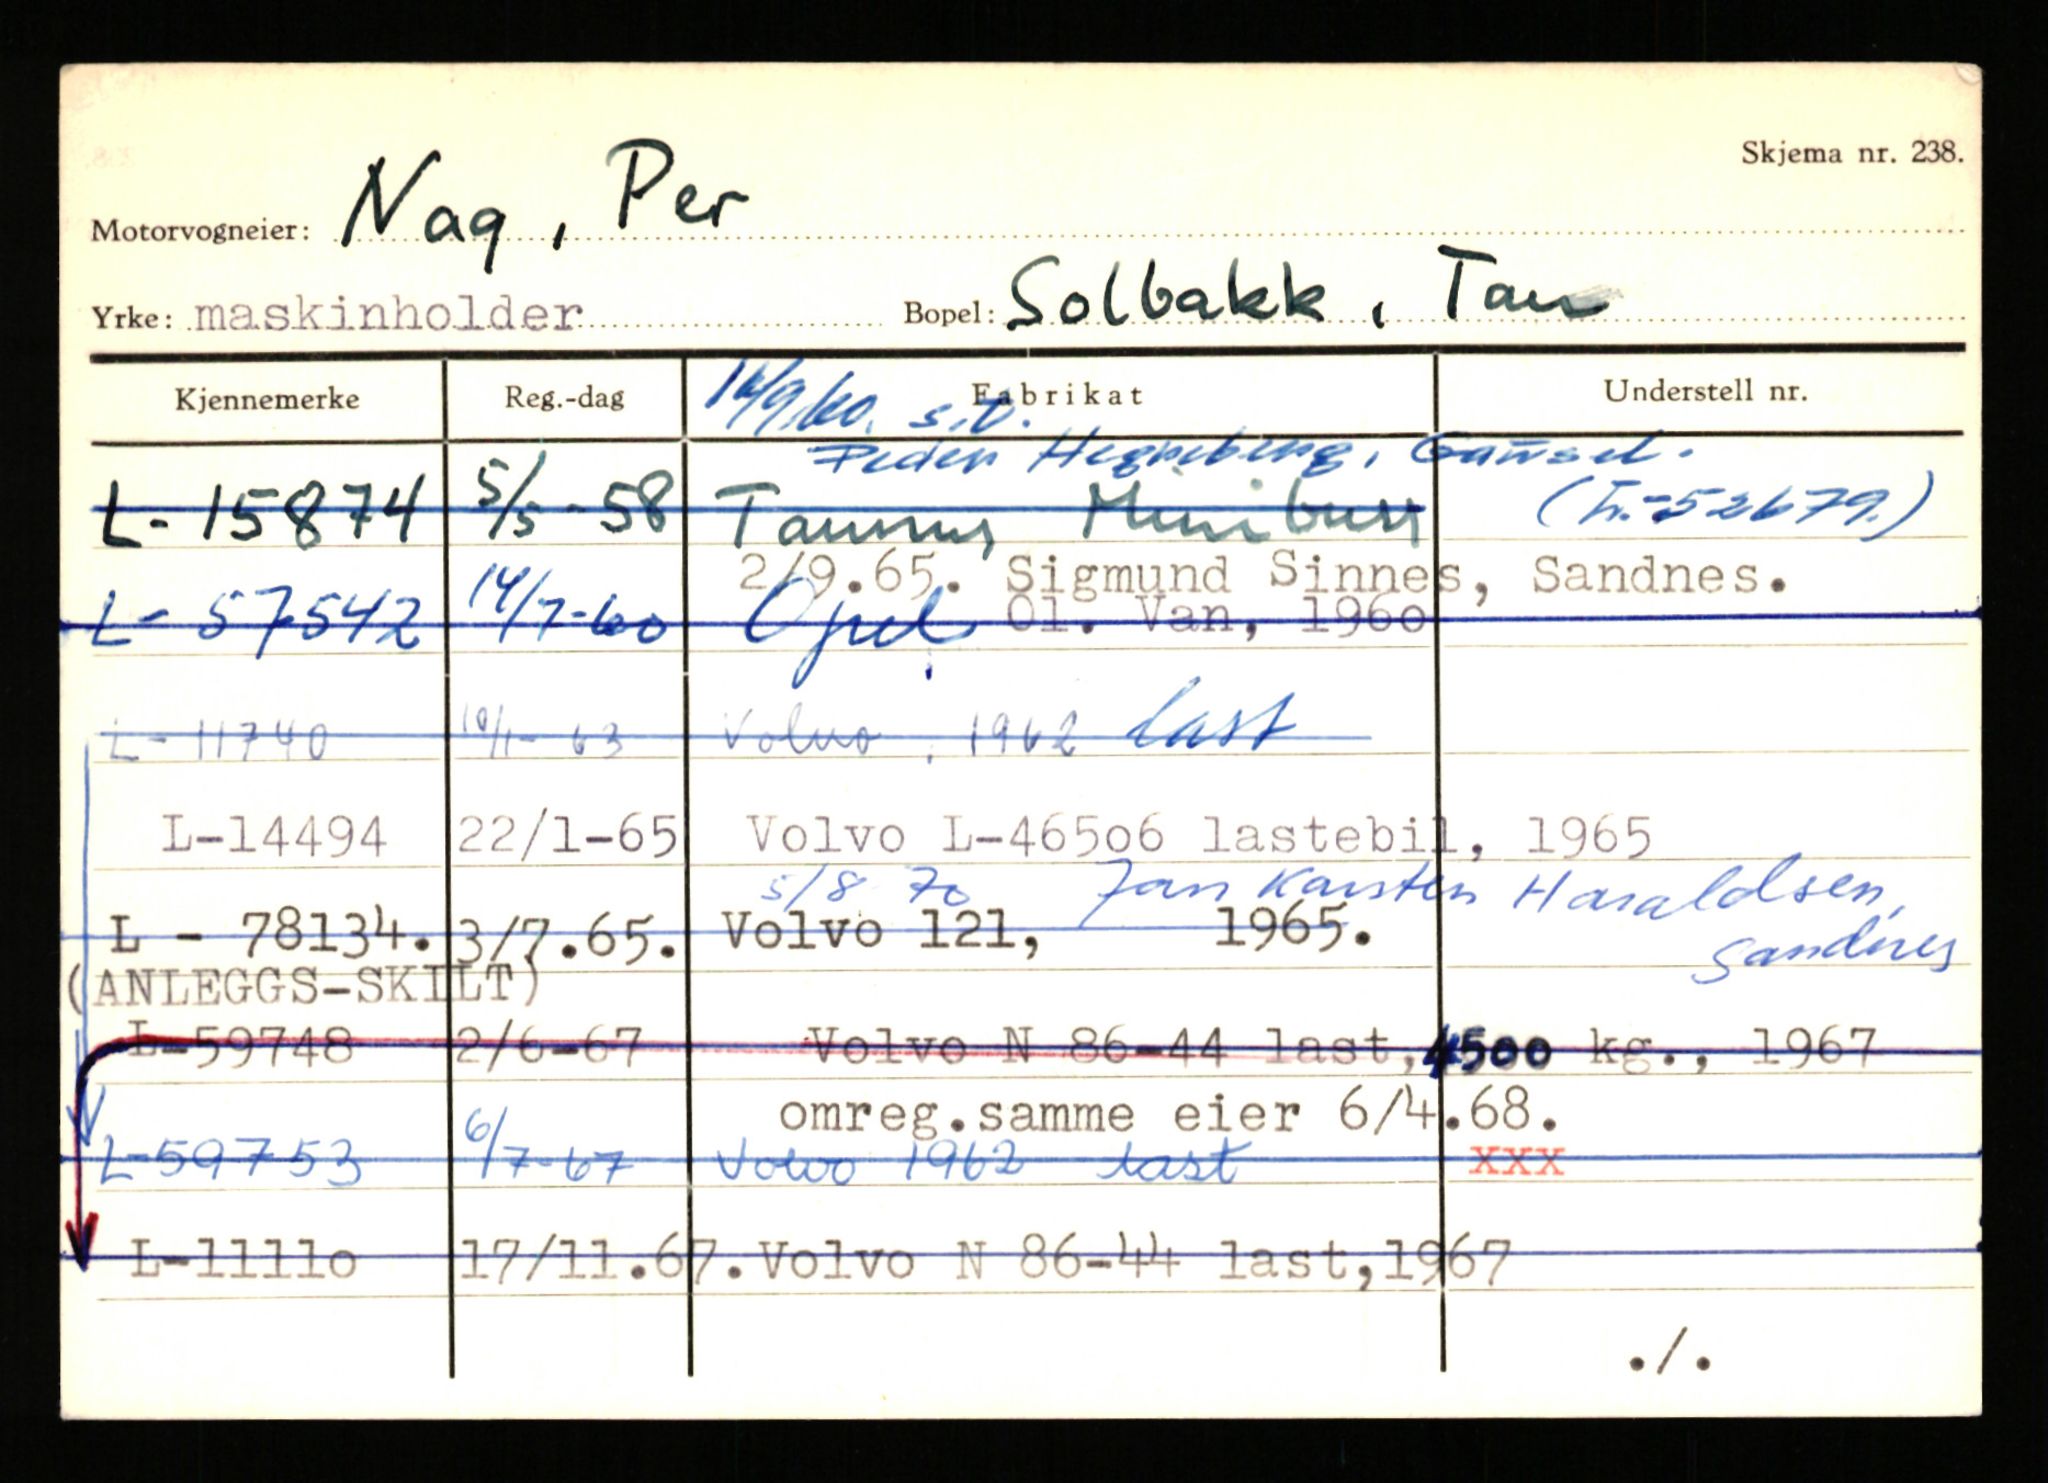 Skjema nr. 238.
Motorvogneier: Nag, Per
Yrke: maskinholder Bopel: Solbakk, Tau
Kjennemerke Reg.-dag Fabrikat Understell nr.
14/9.60. s.t.
Peder Hegreberg, Gausel.
(L.-52679.)
L-15874 5/5-58 Taunus Minibuss
2/9.65. Sigmund Sinnes, Sandnes.
L-57542 14/7-60 Opel Ol. Van, 1960
L-11740 10/1-63 Volvo, 1962 last
L-14494 22/1-65 Volvo L-46506 lastebil, 1965
5/8 70 Jan Karsten Haraldsen,
Sandnes
L - 78134. 3/7.65. Volvo 121, 1965.
(ANLEGGS-SKILT)
L-59748 2/6-67 Volvo N 86-44 last, 4500 kg., 1967
omreg.samme eier 6/4.68.
L-59753 6/7-67 Volvo 1962 last xxx
L-11110 17/11.67. Volvo N 86-44 last,1967
./.